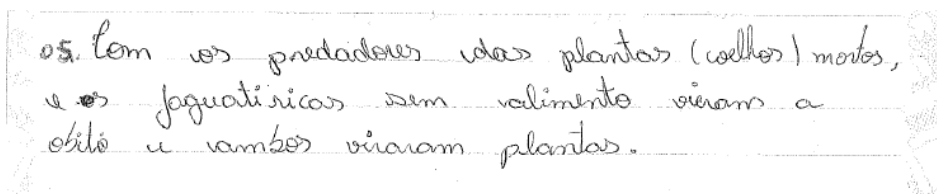 05. Com os predadores das plantas (coelhos) mortos,
e os jaguatiricas sem alimento vieram a
obito e ambos viraram plantas.